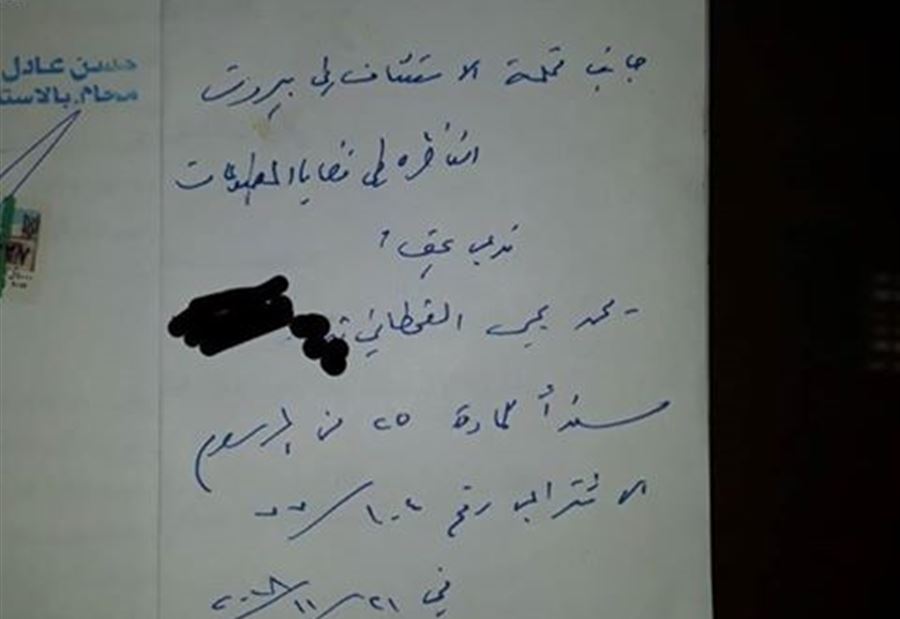 حسن عادل
محام بالاستئ
جانب محكمة الاستئناف في بيروت
الناظرة في قضايا المطبوعات
ندعي بحق
- محمد يحيى القحطاني
سنداً للمادة ٢٥ من المرسوم
الاشتراعي رقم
في ٢١/١١/٢٠١٨